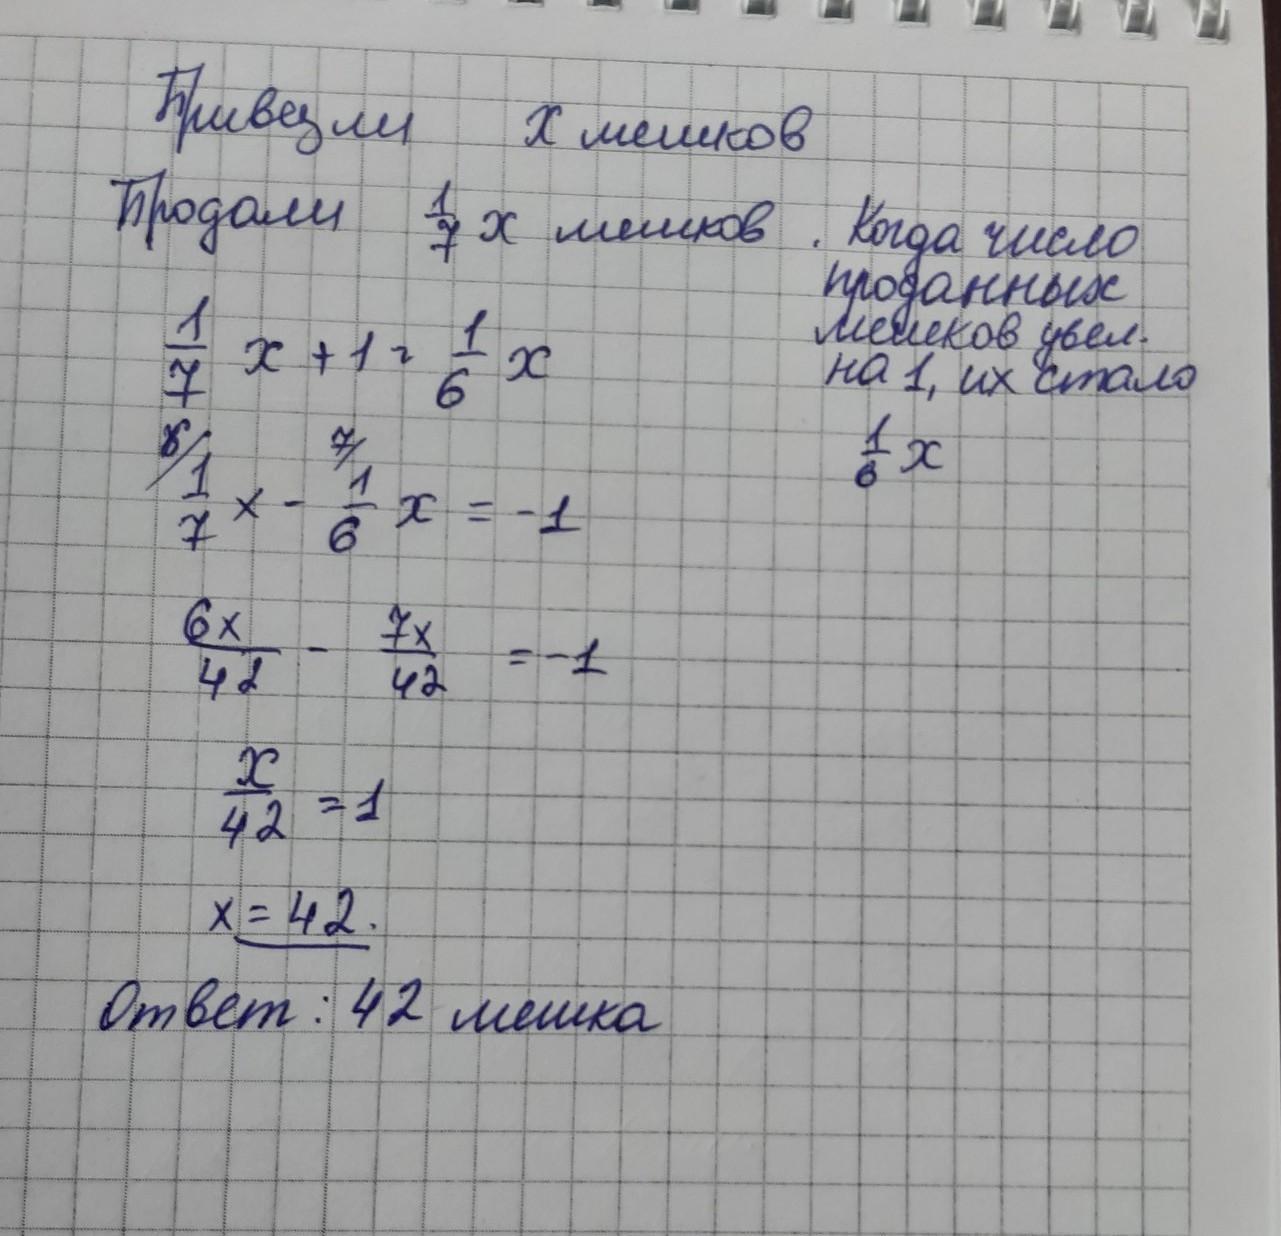 Привезли x мешков
Продали 1/7 x мешков. Когда число
проданных
мешков увел.
на 1, их стало
1/6 x
1/7 x + 1 = 1/6 x
6/ 1/7 x - 7/ 1/6 x = -1
6x/42 - 7x/42 = -1
x/42 = 1
x = 42.
Ответ: 42 мешка